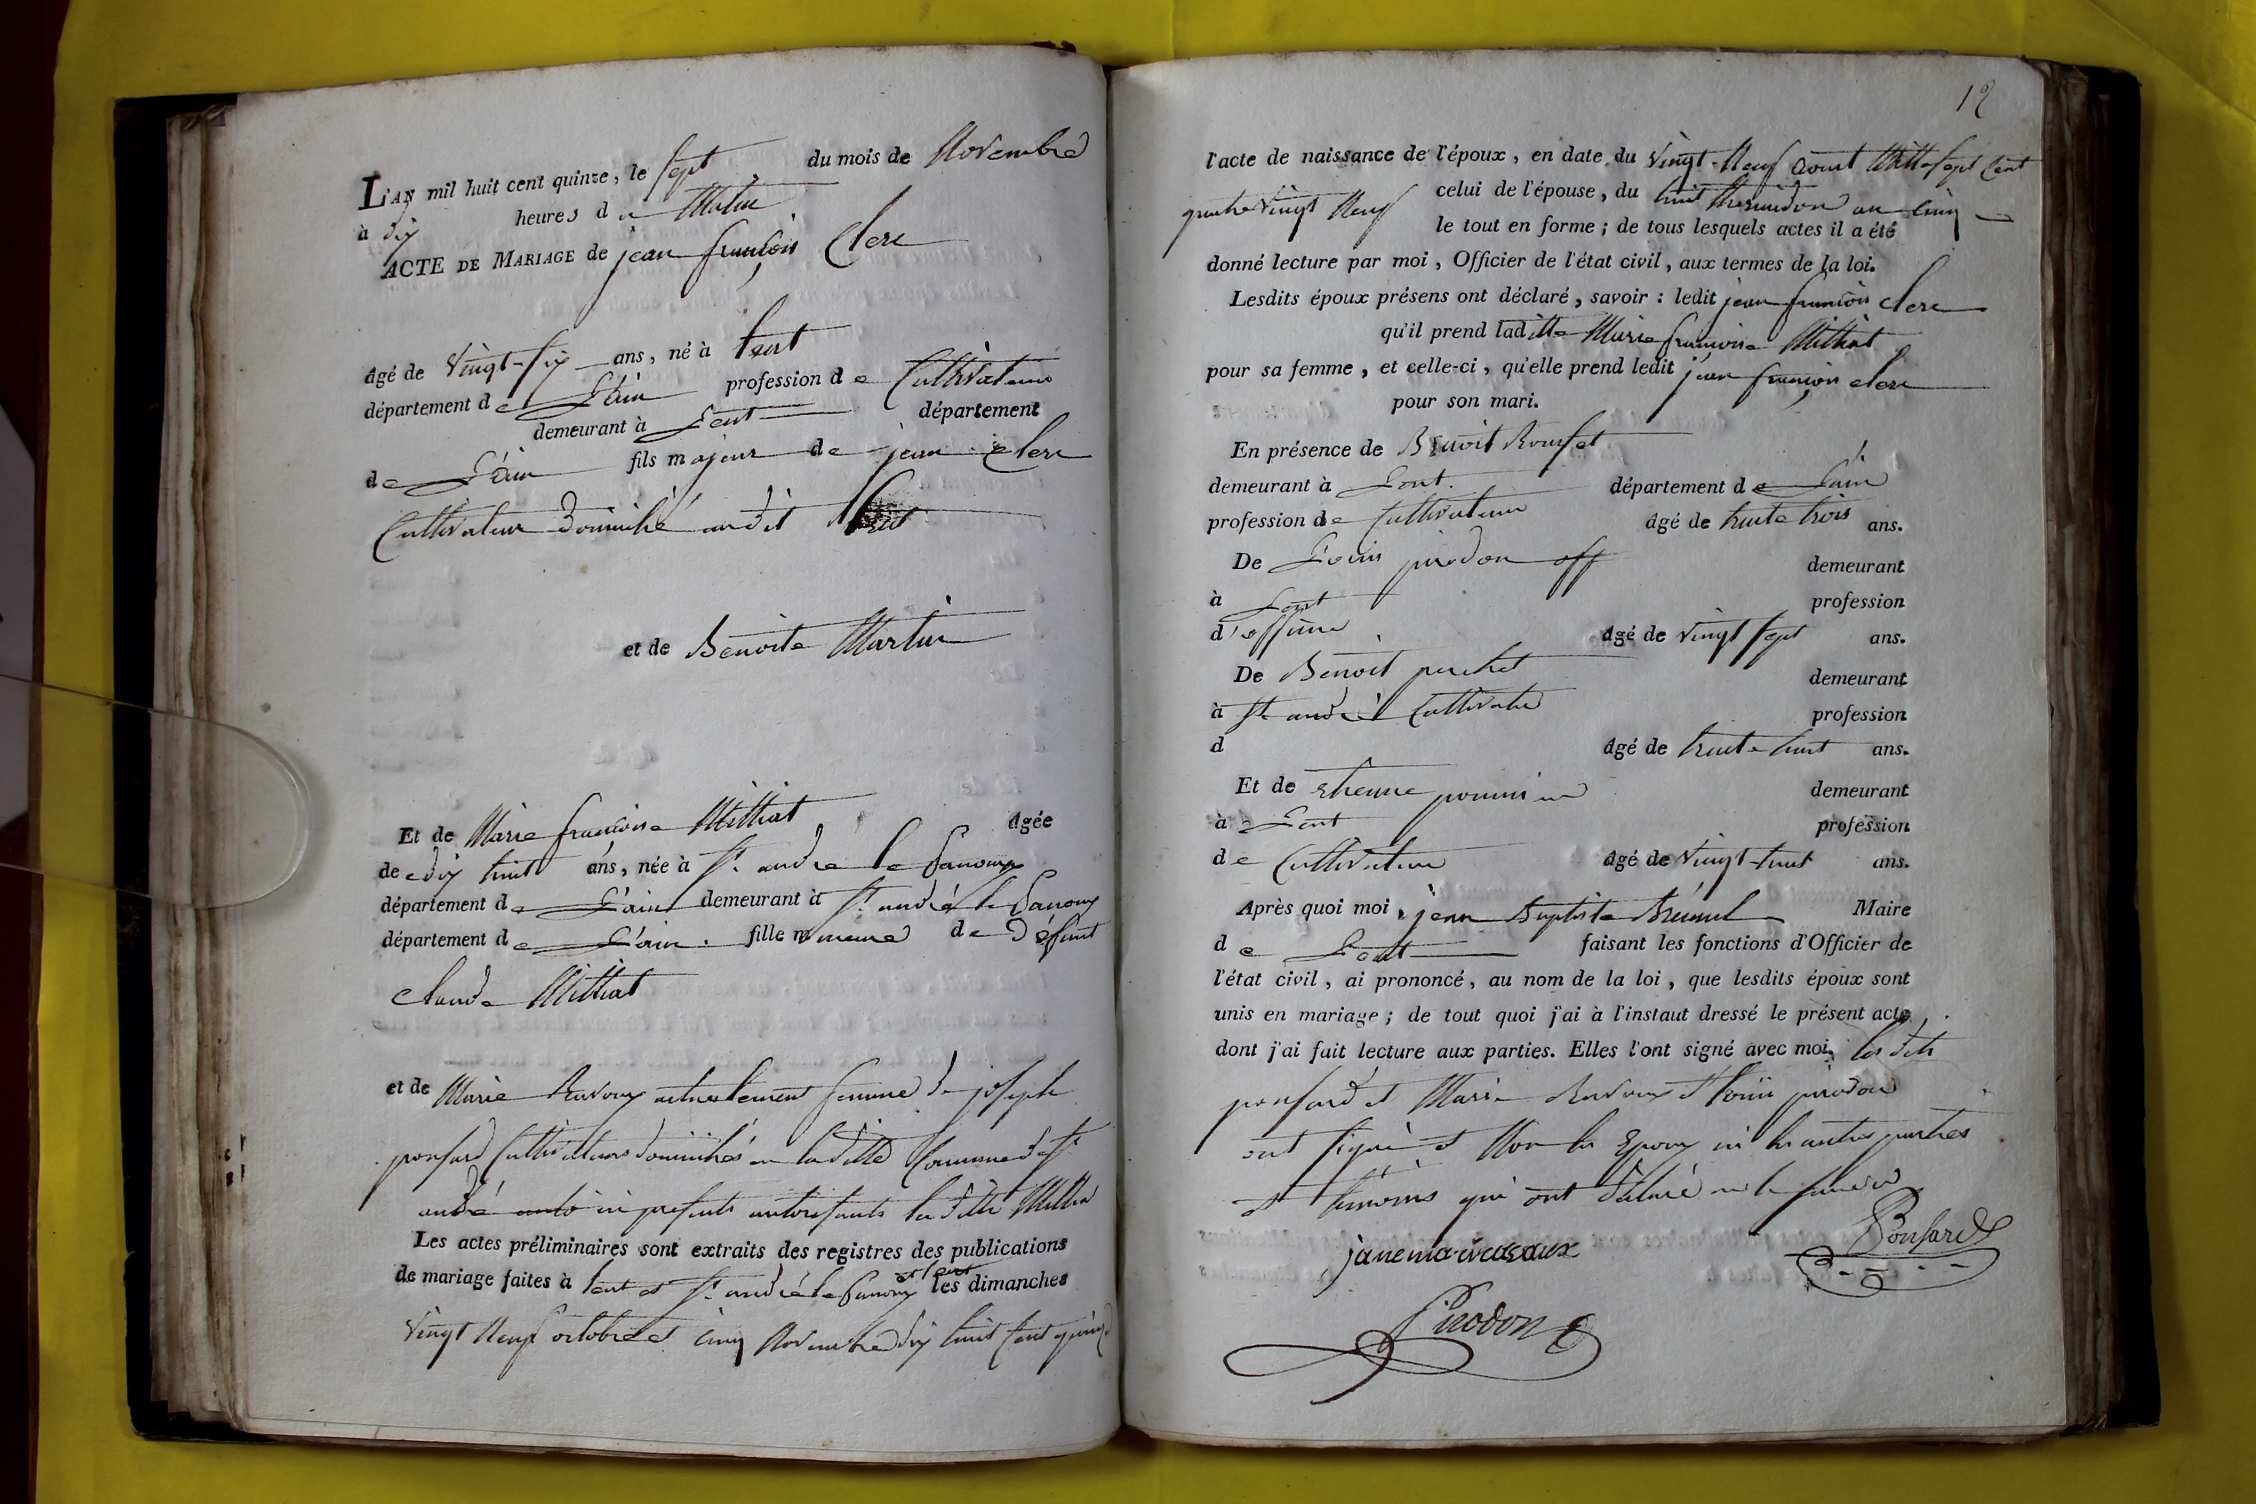 L'AN mil huit cent quinze, le sept du mois de Novembre
à dix heures du Matin
ACTE DE MARIAGE de jean françois Clerc
âgé de vingt-six ans, né à lent
département de L'ain profession de Cultivateur
demeurant à Lent département
de L'ain fils majeur de jean Clerc
Cultivateur domicilié audit lent
et de Benoite Martin
Et de Marie françoise Milliat âgée
de dix huit ans, née à St. andré le panoux
département de L'ain demeurant à St. andré le panoux
département de L'ain. fille mineure de Défunt
claude Milliat
et de Marie Ravoux actuelement femme de joseph
ponsard Cultivateurs domiciliés en la ditte Commune de St.
andré ici presents autorisants la ditte Millia
Les actes préliminaires sont extraits des registres des publications
de mariage faites à lent et St. andré le panoux les dimanches
vingt Neuf octobre et cinq Novembre dix huit Cent quinze
12
l'acte de naissance de l'époux, en date du vingt-Neuf aout Mill sept Cent
quatre vingt Neuf celui de l'épouse, du huit thermidor an cinq
le tout en forme ; de tous lesquels actes il a été
donné lecture par moi, Officier de l'état civil, aux termes de la loi.
Lesdits époux présens ont déclaré, savoir : ledit jean françois clerc
qu'il prend laditte Marie françoise Milliat
pour sa femme, et celle-ci, qu'elle prend ledit jean françois clerc
pour son mari.
En présence de Benoit Rousset
demeurant à Lent. département de L'ain
profession de Cultivateur âgé de trente trois ans.
De Louis pirodon off demeurant
à Lent profession
d'officier âgé de vingt sept ans.
De Benoit perchet demeurant
à St andré Cultivateur profession
d âgé de trente huit ans.
Et de etienne demeurant
à Lent profession
de Cultivateur âgé de vingt-huit ans.
Après quoi moi, jean Baptiste Maire
de Lent faisant les fonctions d'Officier de
l'état civil, ai prononcé, au nom de la loi, que lesdits époux sont
unis en mariage ; de tout quoi j'ai à l'instaut dressé le présent acte
dont j'ai fait lecture aux parties. Elles l'ont signé avec moi, les dits
ponsard et Marie Ravoux et Louis pirodon
ont signé et Non les Epoux ni les autres parties
et témoins qui ont déclaré ne le savoir
janemarieravaux
Ponsard
Pirodon